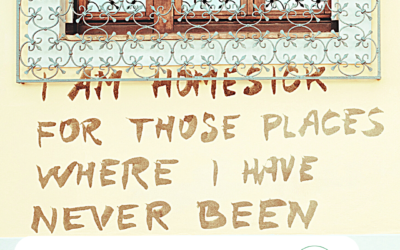 I AM HOMESICK
FOR THOSE PLACES
WHERE I HAVE
NEVER BEEN